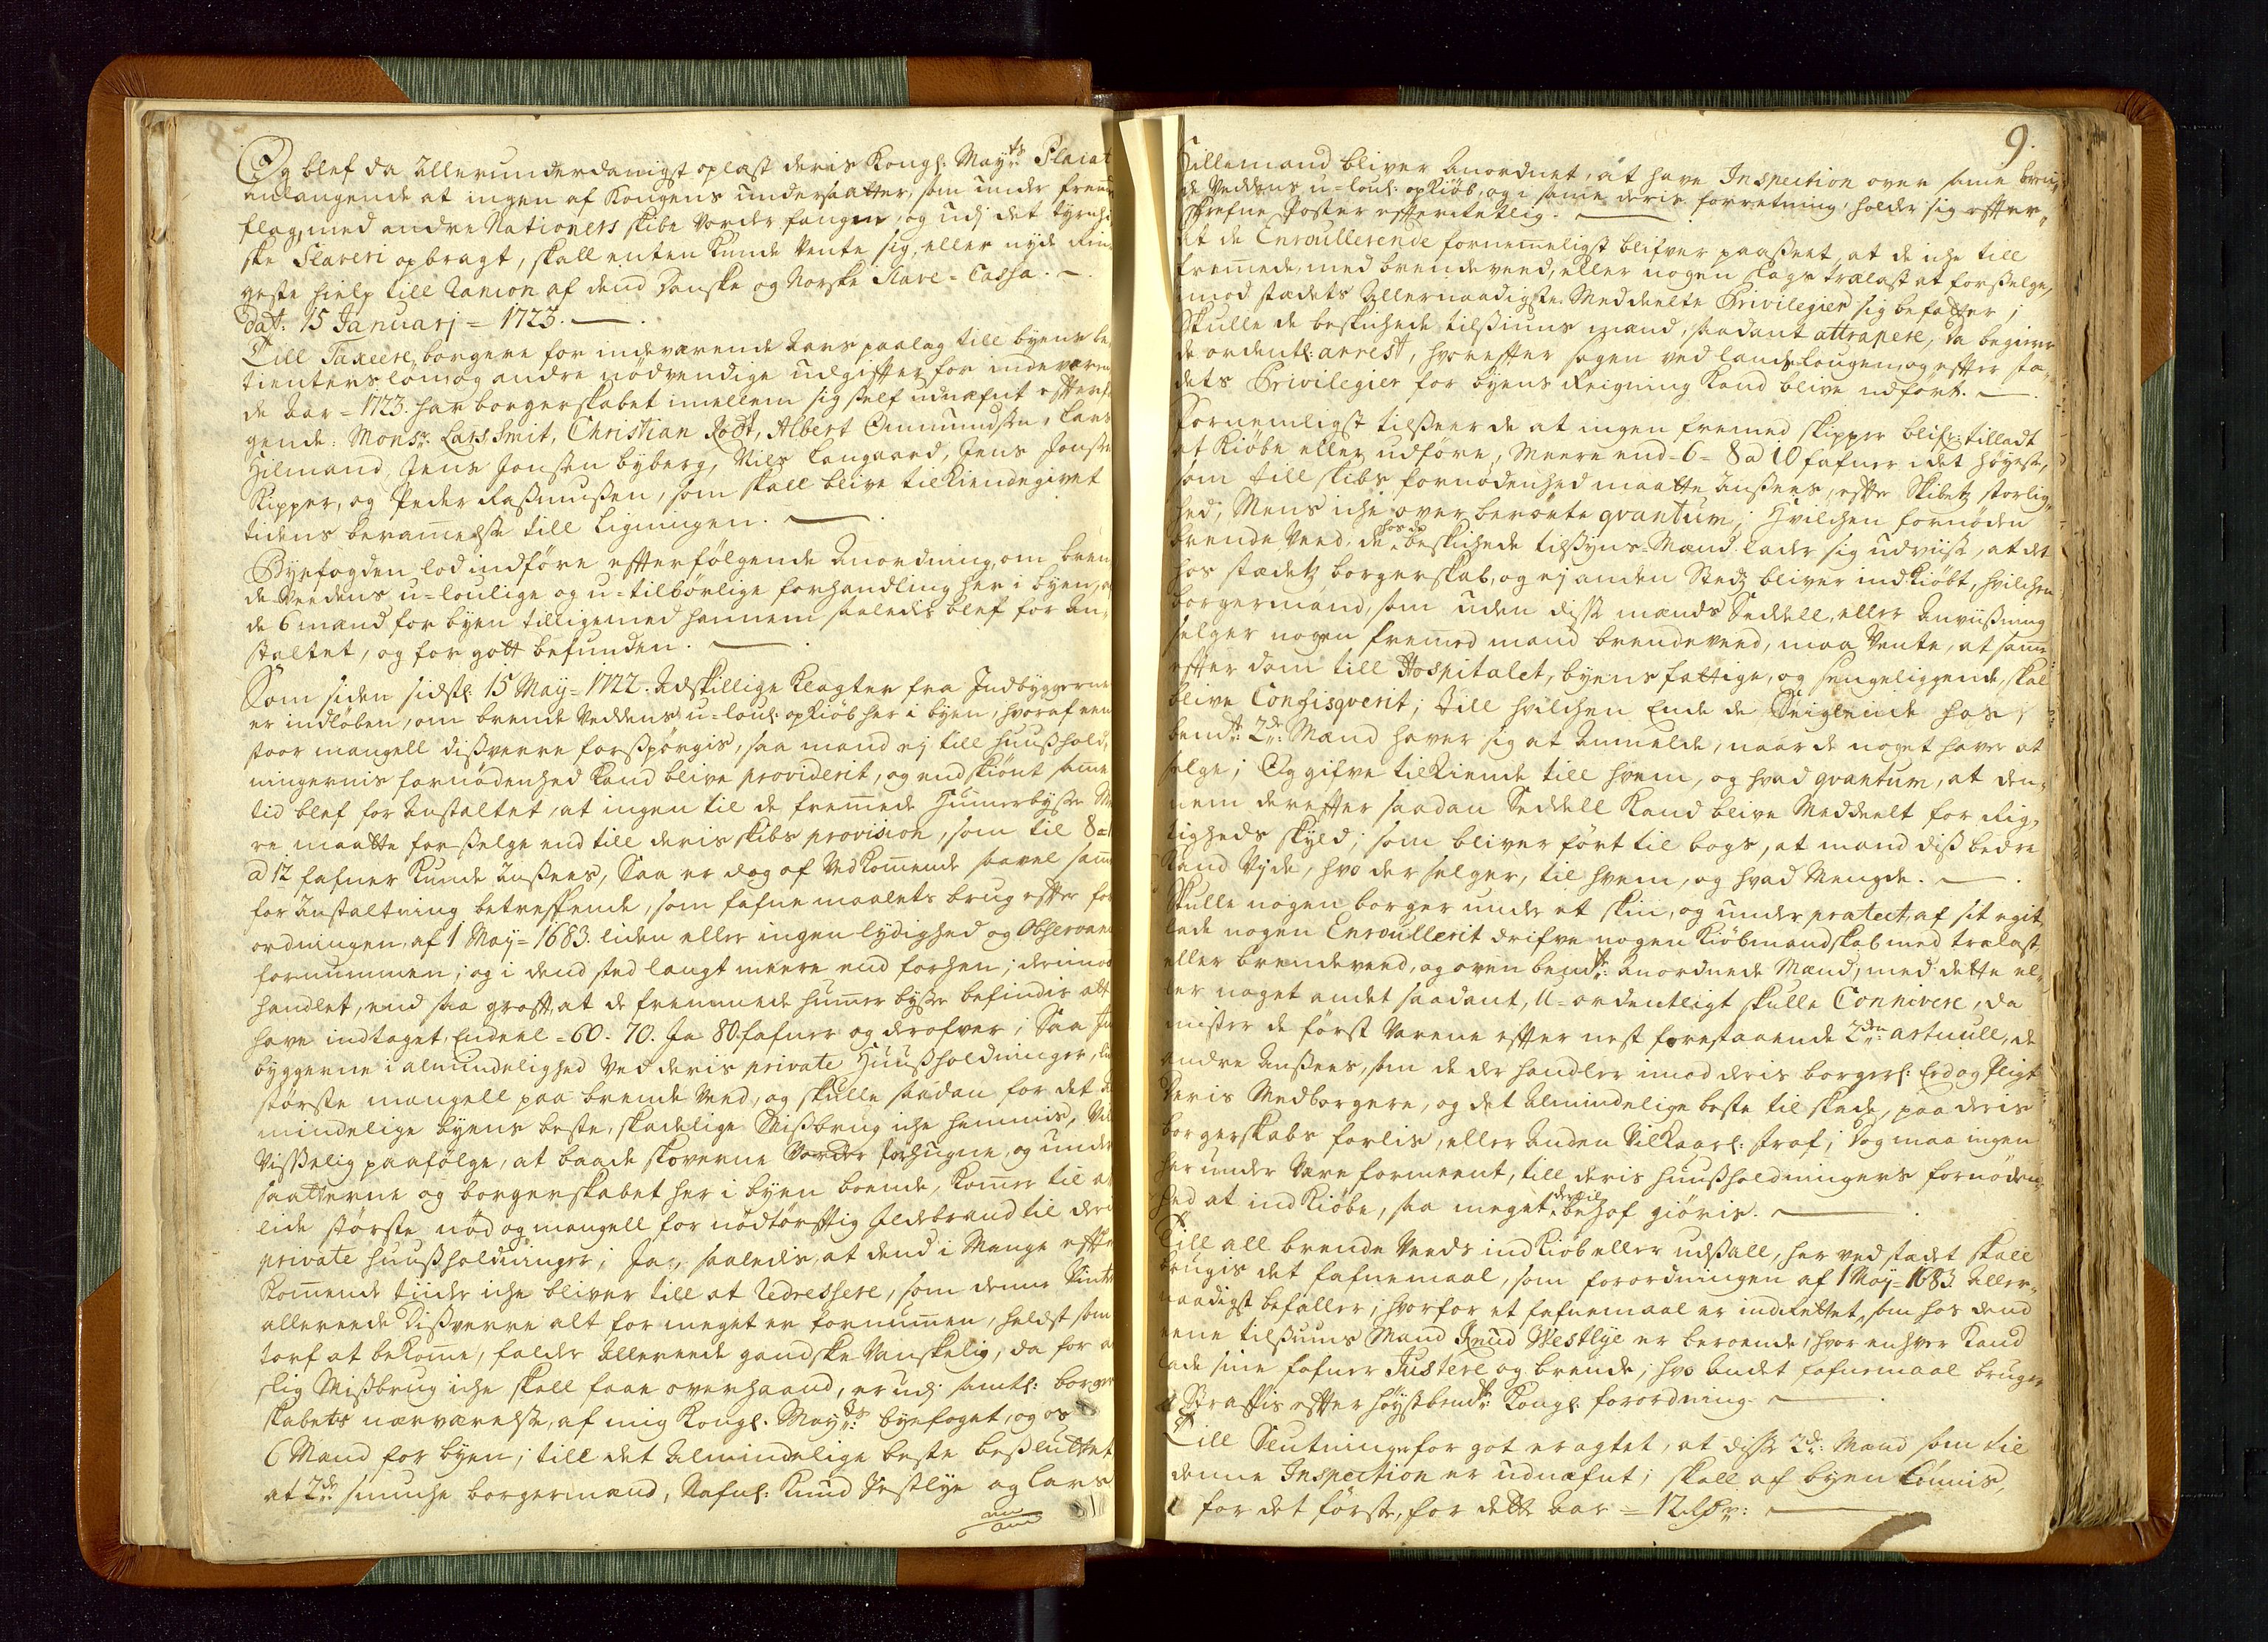 Og blef da allerunderdanigst oplæst deris Kongl: Mayts: Placat
anlangende at ingen af Kongens undersaatter, som under fremd
flag, med andre Nationers skibe vorder fangen, og udj det tyrchi-
ske Slaveri opbragt, skall enten kunde vente sig, eller nyde rin-
geste hielp till Ranson af dend Danske og Norske Slave-Cassa.
dat: 15 Januarj = 1723.
Till Taxere, borgere for indeværende Aars paalag till byens be-
tienters lön, og andre nödvendige udgiffter for indeværen-
de Aar = 1723. har borgerskabet imellem sig self udnæfnt effterföl-
gende: Monsr: Lars Smit, Christian Rodt, Albert Omundsen, Lars
Hilmand, Jens Jonsen byberg, Niels Langaard, Jens Jonsen
Skipper, og Peder Rasmussen, som skall blive tilkiendegivet
tidens berammelse till Ligningen.
Byefogden lod indføre effterfölgende Anordning, om bren-
de Veedens u-loulige og u-tilbörlige forhandling her i byen, af
de 6 mænd for byen tilligemed hannem saaledis blef for An-
staltet, og for gott befunden.
Som siden sidstl: 15 May = 1722. Adskillige Klagter fra Indbyggerne
er indløben, om brende Veddens u-loul: opkiöb her i byen, hvoraf een
stoor mangell dissverre forspörgis, saa mand ej till huusshold-
ningernis fornödenhed kand blive providerit, og endskiönt samme
tid blef for Anstaltet, at ingen til de fremmede Hummerbysser Me-
re maatte forselge end till deris skibs provision, som til 8 a 10
a 12 fafner kunde ansees, Saa er dog af Vedkommende saavel samme
for Anstaltning betreffende, som fafne maalets brug effter for-
ordningen, af 1 May = 1683. liden eller ingen lydighed og Observance
fornummen; og i dend sted langt meere end forhen; derimod
handlet, end saa groft, at de fremmede hummer bysser befindis att
have indtaget, Endeel = 60. 70. Ja 80. fafner og derofver; Saa In-
byggerne i almindelighed ved deris private Huussholdninger, lider
störste mangell paa brende Veed, og skulle saadan for det al-
mindelige byens beste, skadelige Missbrug iche hemmis, Vil
visselig paafölge, at baade skovene vorder forhugne, og under
saatterne og borgerskabet her i byen boende, kommer til at
lide störste nöd og mangell for nödtörfftig Ildebrand til deris
private huussholdninger; Ja, saaledis, at dend i Mange effter
kommende tiider iche bliver till at Redressere, som denne Vinter
allereede Dissverre alt for meget er fornummen, heldst som
torf at bekomme, falder allereede gandske vanskelig, da for at
slig Missbrug iche skall faae overhaand, er udj samtl: borger
skabets nærværelse, af mig Kongl. Mayts: byefoget, og os
6 Mænd for byen; till det Almindelige beste besluttet
at 2de: smuche borgermænd, Nafnl: Knud Westlye og Lars
9.
Hillemand bliver Anordnet, at have Inspection over samme bren-
de Veddens u-loul: opkiöb, og i samme deris forretning holder sig effter-
skrefne Poster effterretlig.
At de Enroullerende fornemmeligst blifver paasseet, at de iche till
fremmede, med brendeveed, eller nogen slags trælast at forsselge,
mod stædets Allernaadigste Meddeelte Privilegier sig befatter;
Skulle de beskichede tilsiuns mænd, saadant attrapere, da begiere
de ordentl: arrest, hvoreffter sagen ved landsLougen, og effter stæ-
dets Privilegier for byens Reigning kand blive udfört.
Fornemligst tilseer de at ingen fremmed skipper blifr: tilladt
at kiöbe eller udföre, Meere end = 6 = 8 a 10 fafner i det höyeste,
som till skibs fornödenhed maatte ansees, effter Skibetz storlig-
hed; Mens iche over berörte qvantum; Hvilchen fornöden
brende Veed, de hos de beskichede tilsyns-Mænd lader sig udviise, at det
hos stædetz borgerskab, og ej anden Stedz bliver indkiöbt, hvilchen
borgermand, som uden disse mænds Seddell, eller Anviissning
selger nogen fremmed mand brendeveed, maa vente, at samme
effter dom till Hospitalet, byens fattige, og sengeliggende, skal
blive Confisqverit; till hvilchen Ende de Seiglende hos,
bendte: 2de: Mænd haver sig at Anmelde, naar de noget haver at
selge; Og gifve tilkiende till hvem, og hvad qvantum, at den-
nem dereffter saadan Seddell kand blive Meddeelt for Rig-
tigheds skyld; som bliver fört til bogs, at mand diss bedre
kand Vide, hvo der selger, til hvem, og hvad Mengde.
Skulle nogen borger under et skin, og under protect, af sit egit,
lade nogen Enroullerit drifve nogen kiöbmandskab med trælast,
eller brendeveed, og oven bendte: Anordnede Mænd, med dette el-
ler noget andet saadant, U-ordentligt skulle Connivere, da
mister de först Varene effter nest forestaaende 2den: articull, de
andre Ansees, som de der handler imod deris borgerl: Eed og Pligt
deris Medborgere, og det Almindelige beste til skade, paa deris
borgerskabs forlis, eller anden Vilkaarl: straf; Dog maa ingen
her under være formeent, till deris huussholdningers fornöden-
hed at indkiöbe, saa meget dertil behof giöris.
Till all brende Veeds indkiöb eller udsall, her ved stædet skall
brugis det fafnemaal, som forordningen af 1 May = 1683 Aller-
naadigst befaller; hvorfor et fafnemaal er indrettet, som hos dend
eene tilsiuns Mand Knud Westlye er beroende, hvor enhver kand
lade sine fafner Justere og brende; hvo andet fafnemaal bruger
Straffis effter höystbendte: Kongl: forordning.
Till Slutning for got eragtet, at disse 2de: Mænd som til
denne Inspection er udnæfnt; skall af byen Lönnis,
for det förste, for dette Aar = 12